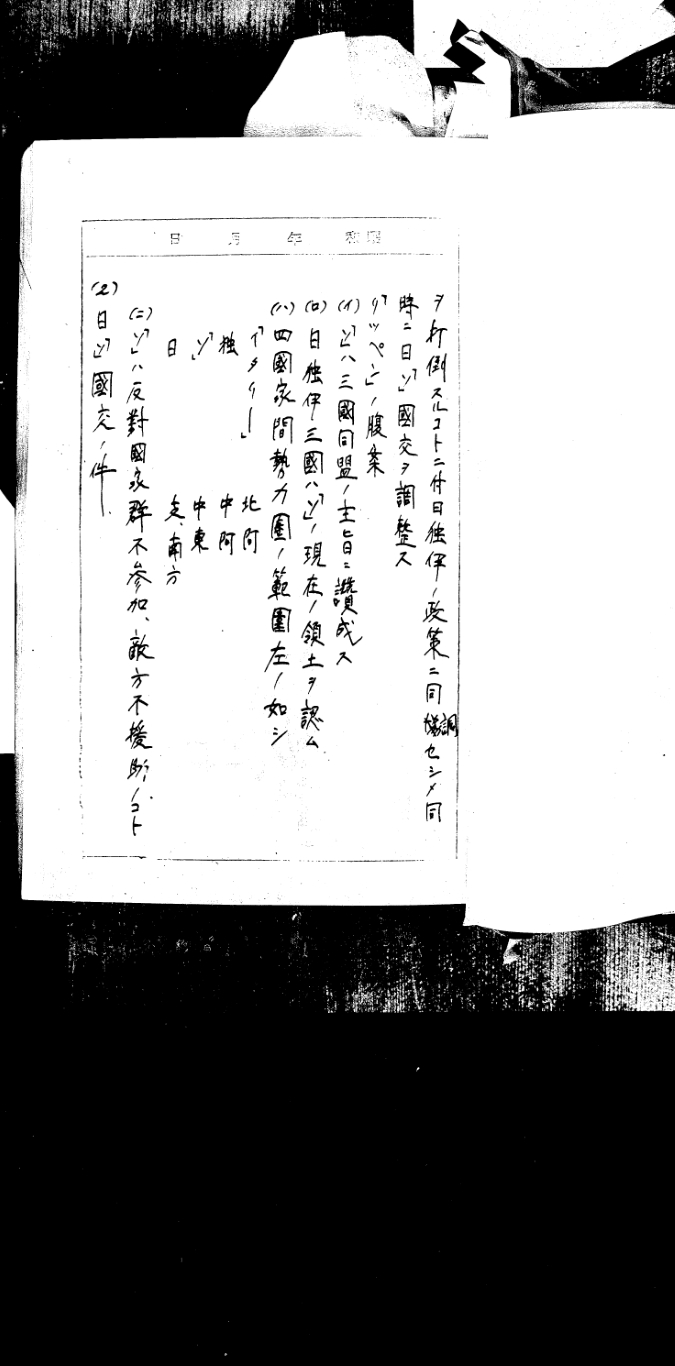 昭和　年　月　日
ヲ打倒スルコトニ付日独伊ノ政策ニ同調セシメ同
時ニ日「ソ」國交ヲ調整ス
「リッペン」ノ腹案
(イ)「ソ」ハ三國同盟ノ主旨ニ讃成ス
(ロ)日独伊三國ハ「ソ」ノ現在ノ領土ヲ認ム
(ハ)四國家間勢力圏ノ範圍左ノ如シ
「イタリー」　北阿
独　中阿
「ソ」　中東
日　支、南方
(ニ)「ソ」ハ反對國家群不参加、敵方不援助ノコト
(2)日「ソ」國交ノ件